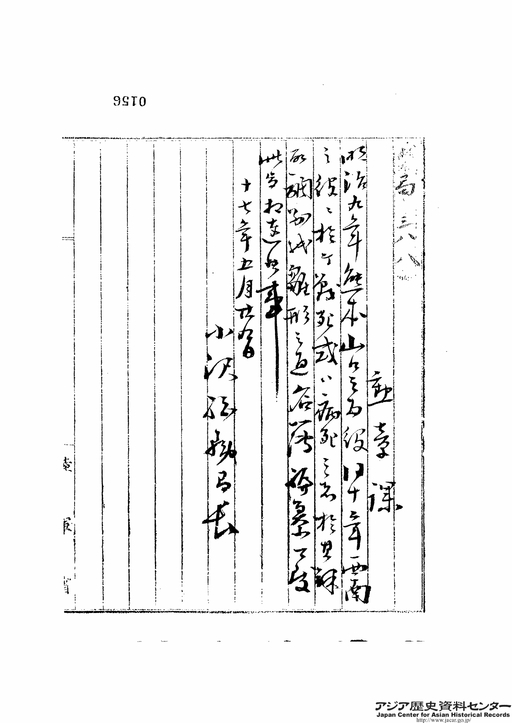 0156
局三六八
勲章課
明治九年熊本山口之両役同十年西南
之役ニ於テ戦死或ハ病死之者於其課
取調別紙雛形之通名簿
此旨相達候事
十七年五月廿九日
小沢総務局長
陸軍省
アジア歴史資料センター
Japan Center for Asian Historical Records
http://www.jacar.go.jp/